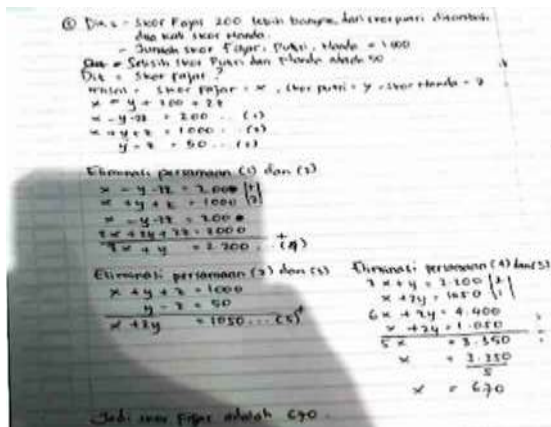 Dik = - Skor Fajar 200 lebih banyak dari skor putri ditambah
dua kali skor Nanda.
- Jumlah skor Fajar, Putri, Nanda = 1000
- Selisih skor Putri dan Nanda adalah 50
Dit = Skor Fajar ?
Misal = Skor Fajar = x, skor putri = y, skor Nanda = z
x = y + 200 + 2z
x - y - 2z = 200 ... (1)
x + y + z = 1000 ... (2)
y - z = 50 ... (3)
Eliminasi persamaan (1) dan (2)
x - y - 2z = 200 |1|
x + y + z = 1000 |2|
x - y - 2z = 200
2x + 2y + 2z = 2000 +
3x + y = 2.200 ... (4)
Eliminasi persamaan (2) dan (3)
x + y + z = 1000
y - z = 50 +
x + 2y = 1050 ... (5)
Eliminasi persamaan (4) dan (5)
3x + y = 2.200 |2|
x + 2y = 1050 |1|
6x + 2y = 4.400
x + 2y = 1.050 -
5x = 3.350
x = 3.350
5
x = 670
Jadi skor Fajar adalah 670.